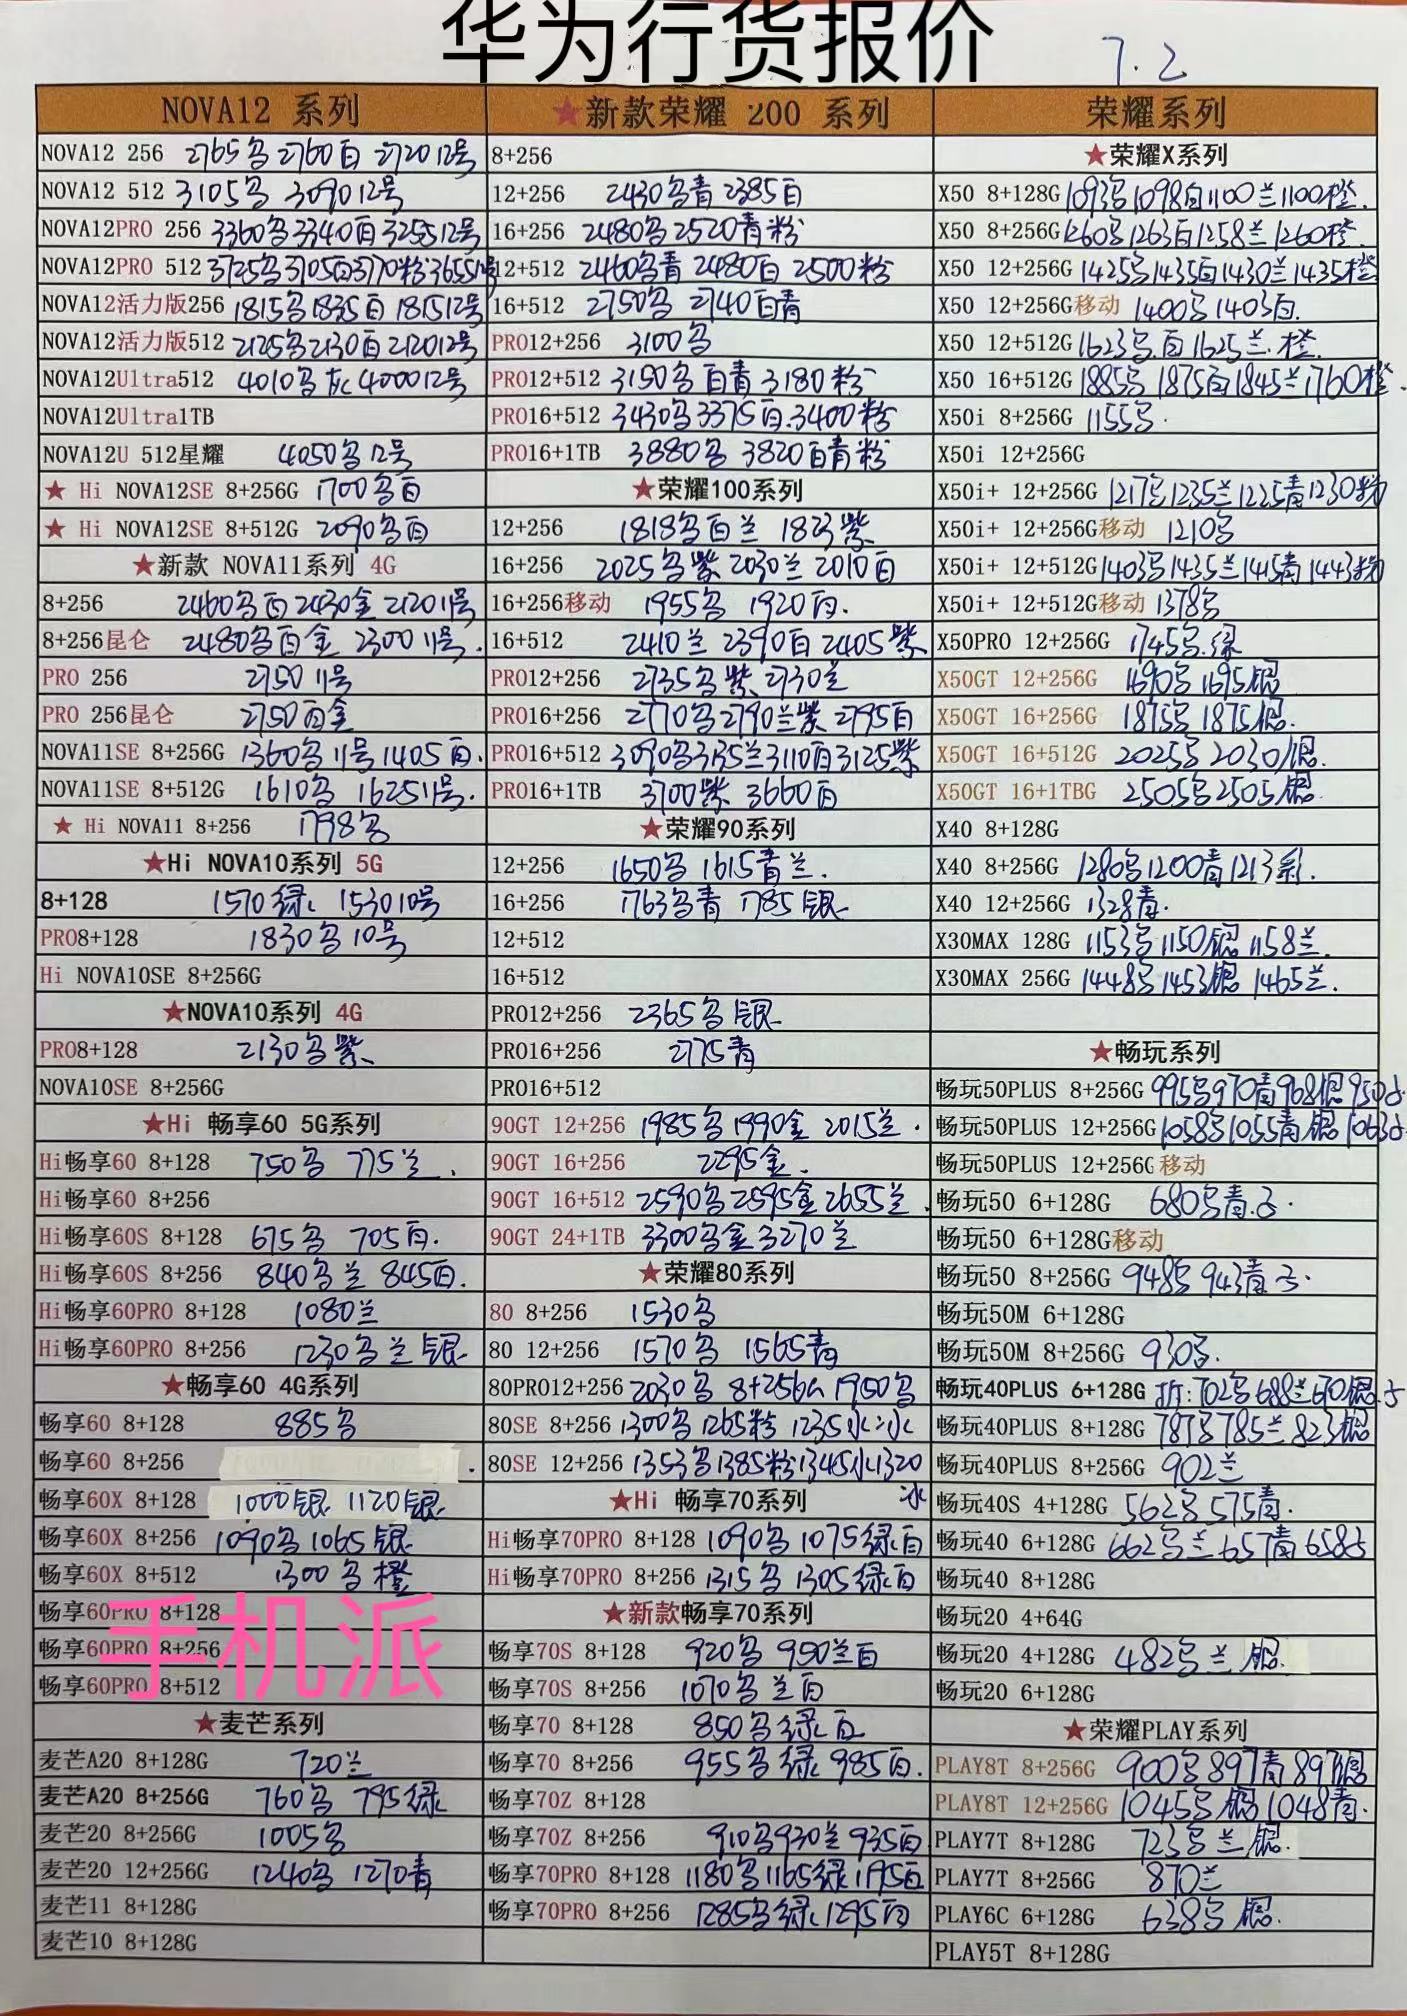 华为行货报价
7.2
NOVA12 系列
NOVA12 256 2765乌 2760白 2720 12号
NOVA12 512 3105乌 3090 12号
NOVA12PRO 256 3360乌 3340白 3255 12号
NOVA12PRO 512 3725乌 3705白 3770粉 3655 12号
NOVA12活力版256 1815乌 1835白 1815 12号
NOVA12活力版512 2125乌 2130白 2120 12号
NOVA12Ultra512 4010乌灰 4000 12号
NOVA12Ultra1TB
NOVA12U 512星耀 4050乌 12号
★ Hi NOVA12SE 8+256G 1700乌白
★ Hi NOVA12SE 8+512G 2090乌白
★新款 NOVA11系列 4G
8+256 2460乌白 2430金 2120 11号
8+256昆仑 2480乌白金 2300 11号.
PRO 256 2750 11号
PRO 256昆仑 2750白金
NOVA11SE 8+256G 1360乌 11号 1405白.
NOVA11SE 8+512G 1610乌 1625 11号.
★ Hi NOVA11 8+256 1798乌
★Hi NOVA10系列 5G
8+128 1570绿 1530 10号
PRO8+128 1830乌 10号
Hi NOVA10SE 8+256G
★NOVA10系列 4G
PRO8+128 2130乌紫
NOVA10SE 8+256G
★Hi 畅享60 5G系列
Hi畅享60 8+128 750乌 775兰.
Hi畅享60 8+256
Hi畅享60S 8+128 675乌 705白.
Hi畅享60S 8+256 840乌兰 845白.
Hi畅享60PRO 8+128 1080兰
Hi畅享60PRO 8+256 1230乌兰银
★畅享60 4G系列
畅享60 8+128 885乌
畅享60 8+256
畅享60X 8+128 1000银 1120银
畅享60X 8+256 1090乌 1065银
畅享60X 8+512 1300乌橙
畅享60PRO 8+128
畅享60PRO 8+256
畅享60PRO 8+512
手机派
★麦芒系列
麦芒A20 8+128G 720兰
麦芒A20 8+256G 760乌 795绿
麦芒20 8+256G 1005乌
麦芒20 12+256G 1240乌 1270青
麦芒11 8+128G
麦芒10 8+128G
★新款荣耀 200 系列
8+256
12+256 2430乌青 2385白
16+256 2480乌 2520青粉
12+512 2460乌青 2480白 2500粉
16+512 2750乌 2740白青
PRO12+256 3100乌
PRO12+512 3150乌白青 3180粉
PRO16+512 3430乌 3375白.3400粉
PRO16+1TB 3880乌 3820白青粉
★荣耀100系列
12+256 1818乌白兰 1833紫
16+256 2025乌紫 2030兰 2010白
16+256移动 1955乌 1920白.
16+512 2410兰 2390白 2405紫
PRO12+256 2735乌紫 2730兰
PRO16+256 2770乌 2790兰紫 2795白
PRO16+512 3090乌 3135兰 3110白 3125紫
PRO16+1TB 3700紫 3660白
★荣耀90系列
12+256 1650乌 1615青兰.
16+256 1763乌青 1785银
12+512
16+512
PRO12+256 2365乌银
PRO16+256 2775青
PRO16+512
90GT 12+256 1985乌 1990金 2015兰.
90GT 16+256 2295金.
90GT 16+512 2590乌 2595金 2655兰.
90GT 24+1TB 3300乌金 3270兰
★荣耀80系列
80 8+256 1530乌
80 12+256 1570乌 1565青
80PRO12+256 2030乌 8+256G 1950乌
80SE 8+256 1300乌 1265粉 1235冰
80SE 12+256 1353乌 1385粉 1345 1320冰
★Hi 畅享70系列
Hi畅享70PRO 8+128 1090乌 1075绿白
Hi畅享70PRO 8+256 1315乌 1305绿白
★新款畅享70系列
畅享70S 8+128 920乌 950兰白
畅享70S 8+256 1070乌兰白
畅享70 8+128 850乌绿白
畅享70 8+256 955乌绿 985白.
畅享70Z 8+128
畅享70Z 8+256 910乌 930兰 935白
畅享70PRO 8+128 1180乌 1165绿 1195白
畅享70PRO 8+256 1285乌绿 1295白
荣耀系列
★荣耀X系列
X50 8+128G 1093乌 1098白 1100兰 1100橙.
X50 8+256G 1260乌 1263白 1258兰 1260橙.
X50 12+256G 1425乌 1435白 1430兰 1435橙
X50 12+256G移动 1400乌 1403白.
X50 12+512G 1623乌.白 1625兰.橙.
X50 16+512G 1885乌 1875白 1845兰 1760橙.
X50i 8+256G 1155乌.
X50i 12+256G
X50i+ 12+256G 1217乌 1235兰 1225青 1230粉
X50i+ 12+256G移动 1210乌
X50i+ 12+512G 1403乌 1435兰 1415青 1443粉
X50i+ 12+512G移动 1378乌
X50PRO 12+256G 1745乌.绿
X50GT 12+256G 1690乌 1695银
X50GT 16+256G 1875乌 1875银.
X50GT 16+512G 2025乌 2030银.
X50GT 16+1TBG 2505乌 2505银.
X40 8+128G
X40 8+256G 1280乌 1200青 1213彩.
X40 12+256G 1328青.
X30MAX 128G 1153乌 1150银 1158兰.
X30MAX 256G 1448乌 1453银 1465兰.
★畅玩系列
畅玩50PLUS 8+256G 995乌 970青 968银 950
畅玩50PLUS 12+256G 1058乌 1055青银 1063
畅玩50PLUS 12+256G移动
畅玩50 6+128G 680乌青.
畅玩50 6+128G移动
畅玩50 8+256G 948乌 943青.
畅玩50M 6+128G
畅玩50M 8+256G 930乌.
畅玩40PLUS 6+128G 702乌 688兰 670银
畅玩40PLUS 8+128G 787乌 785兰 823银
畅玩40PLUS 8+256G 902兰
畅玩40S 4+128G 562乌 575青.
畅玩40 6+128G 662乌兰 657青 658
畅玩40 8+128G
畅玩20 4+64G
畅玩20 4+128G 482乌兰银.
畅玩20 6+128G
★荣耀PLAY系列
PLAY8T 8+256G 900乌 897青 897银
PLAY8T 12+256G 1045乌银 1048青.
PLAY7T 8+128G 723乌兰银.
PLAY7T 8+256G 870兰
PLAY6C 6+128G 638乌银.
PLAY5T 8+128G